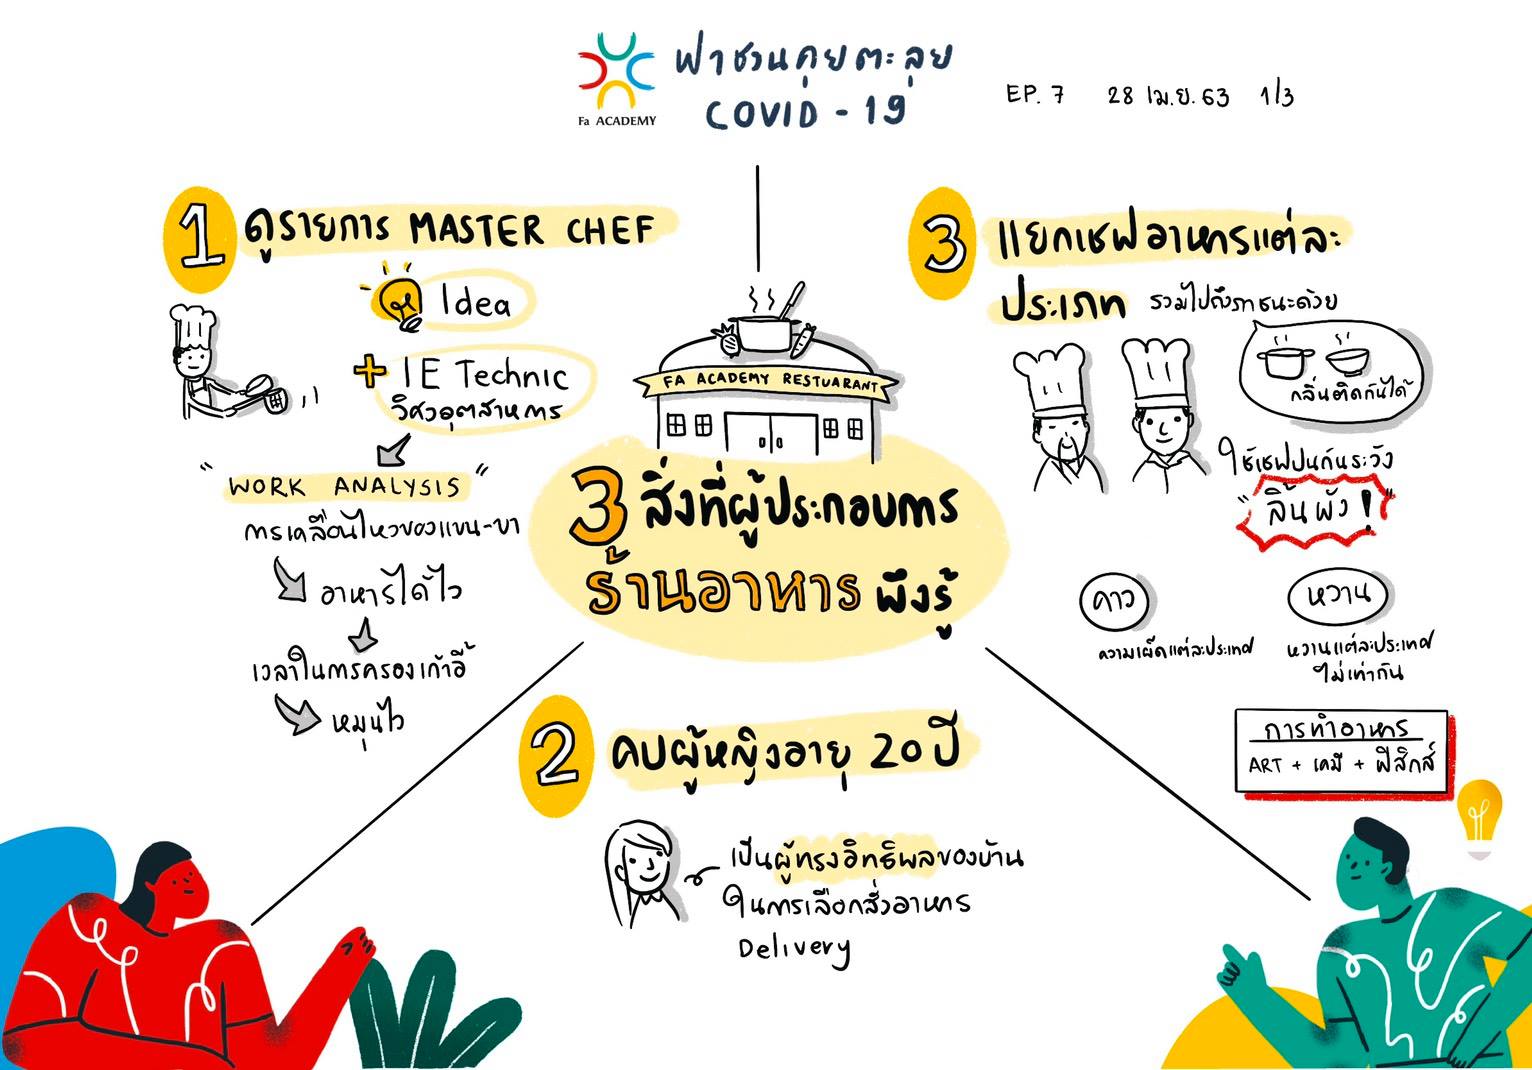 Fa ACADEMY
ฟาชวนคุยตะลุย
COVID - 19
EP. 7 28 เม.ย. 63 1/3
1 ดูรายการ MASTER CHEF
Idea
+ IE Technic
วิศวอุตสาหการ
"WORK ANALYSIS"
การเคลื่อนไหวของแขน-ขา
อาหารได้ไว
เวลาในการครองเก้าอี้
หมุนไว
FA ACADEMY RESTUARANT
3 สิ่งที่ผู้ประกอบการ
ร้านอาหาร พึงรู้
2 คบผู้หญิงอายุ 20 ปี
เป็นผู้ทรงอิทธิพลของบ้าน
ในการเลือกสั่งอาหาร
Delivery
3 แยกเชฟอาหารแต่ละ
ประเภท รวมไปถึงภาชนะด้วย
กลิ่นติดกันได้
ใช้เชฟปนกันระวัง
"ลิ้นพัง!"
คาว
ความเผ็ดแต่ละประเทศ
หวาน
หวานแต่ละประเทศ
ไม่เท่ากัน
การทำอาหาร
ART + เคมี + ฟิสิกส์